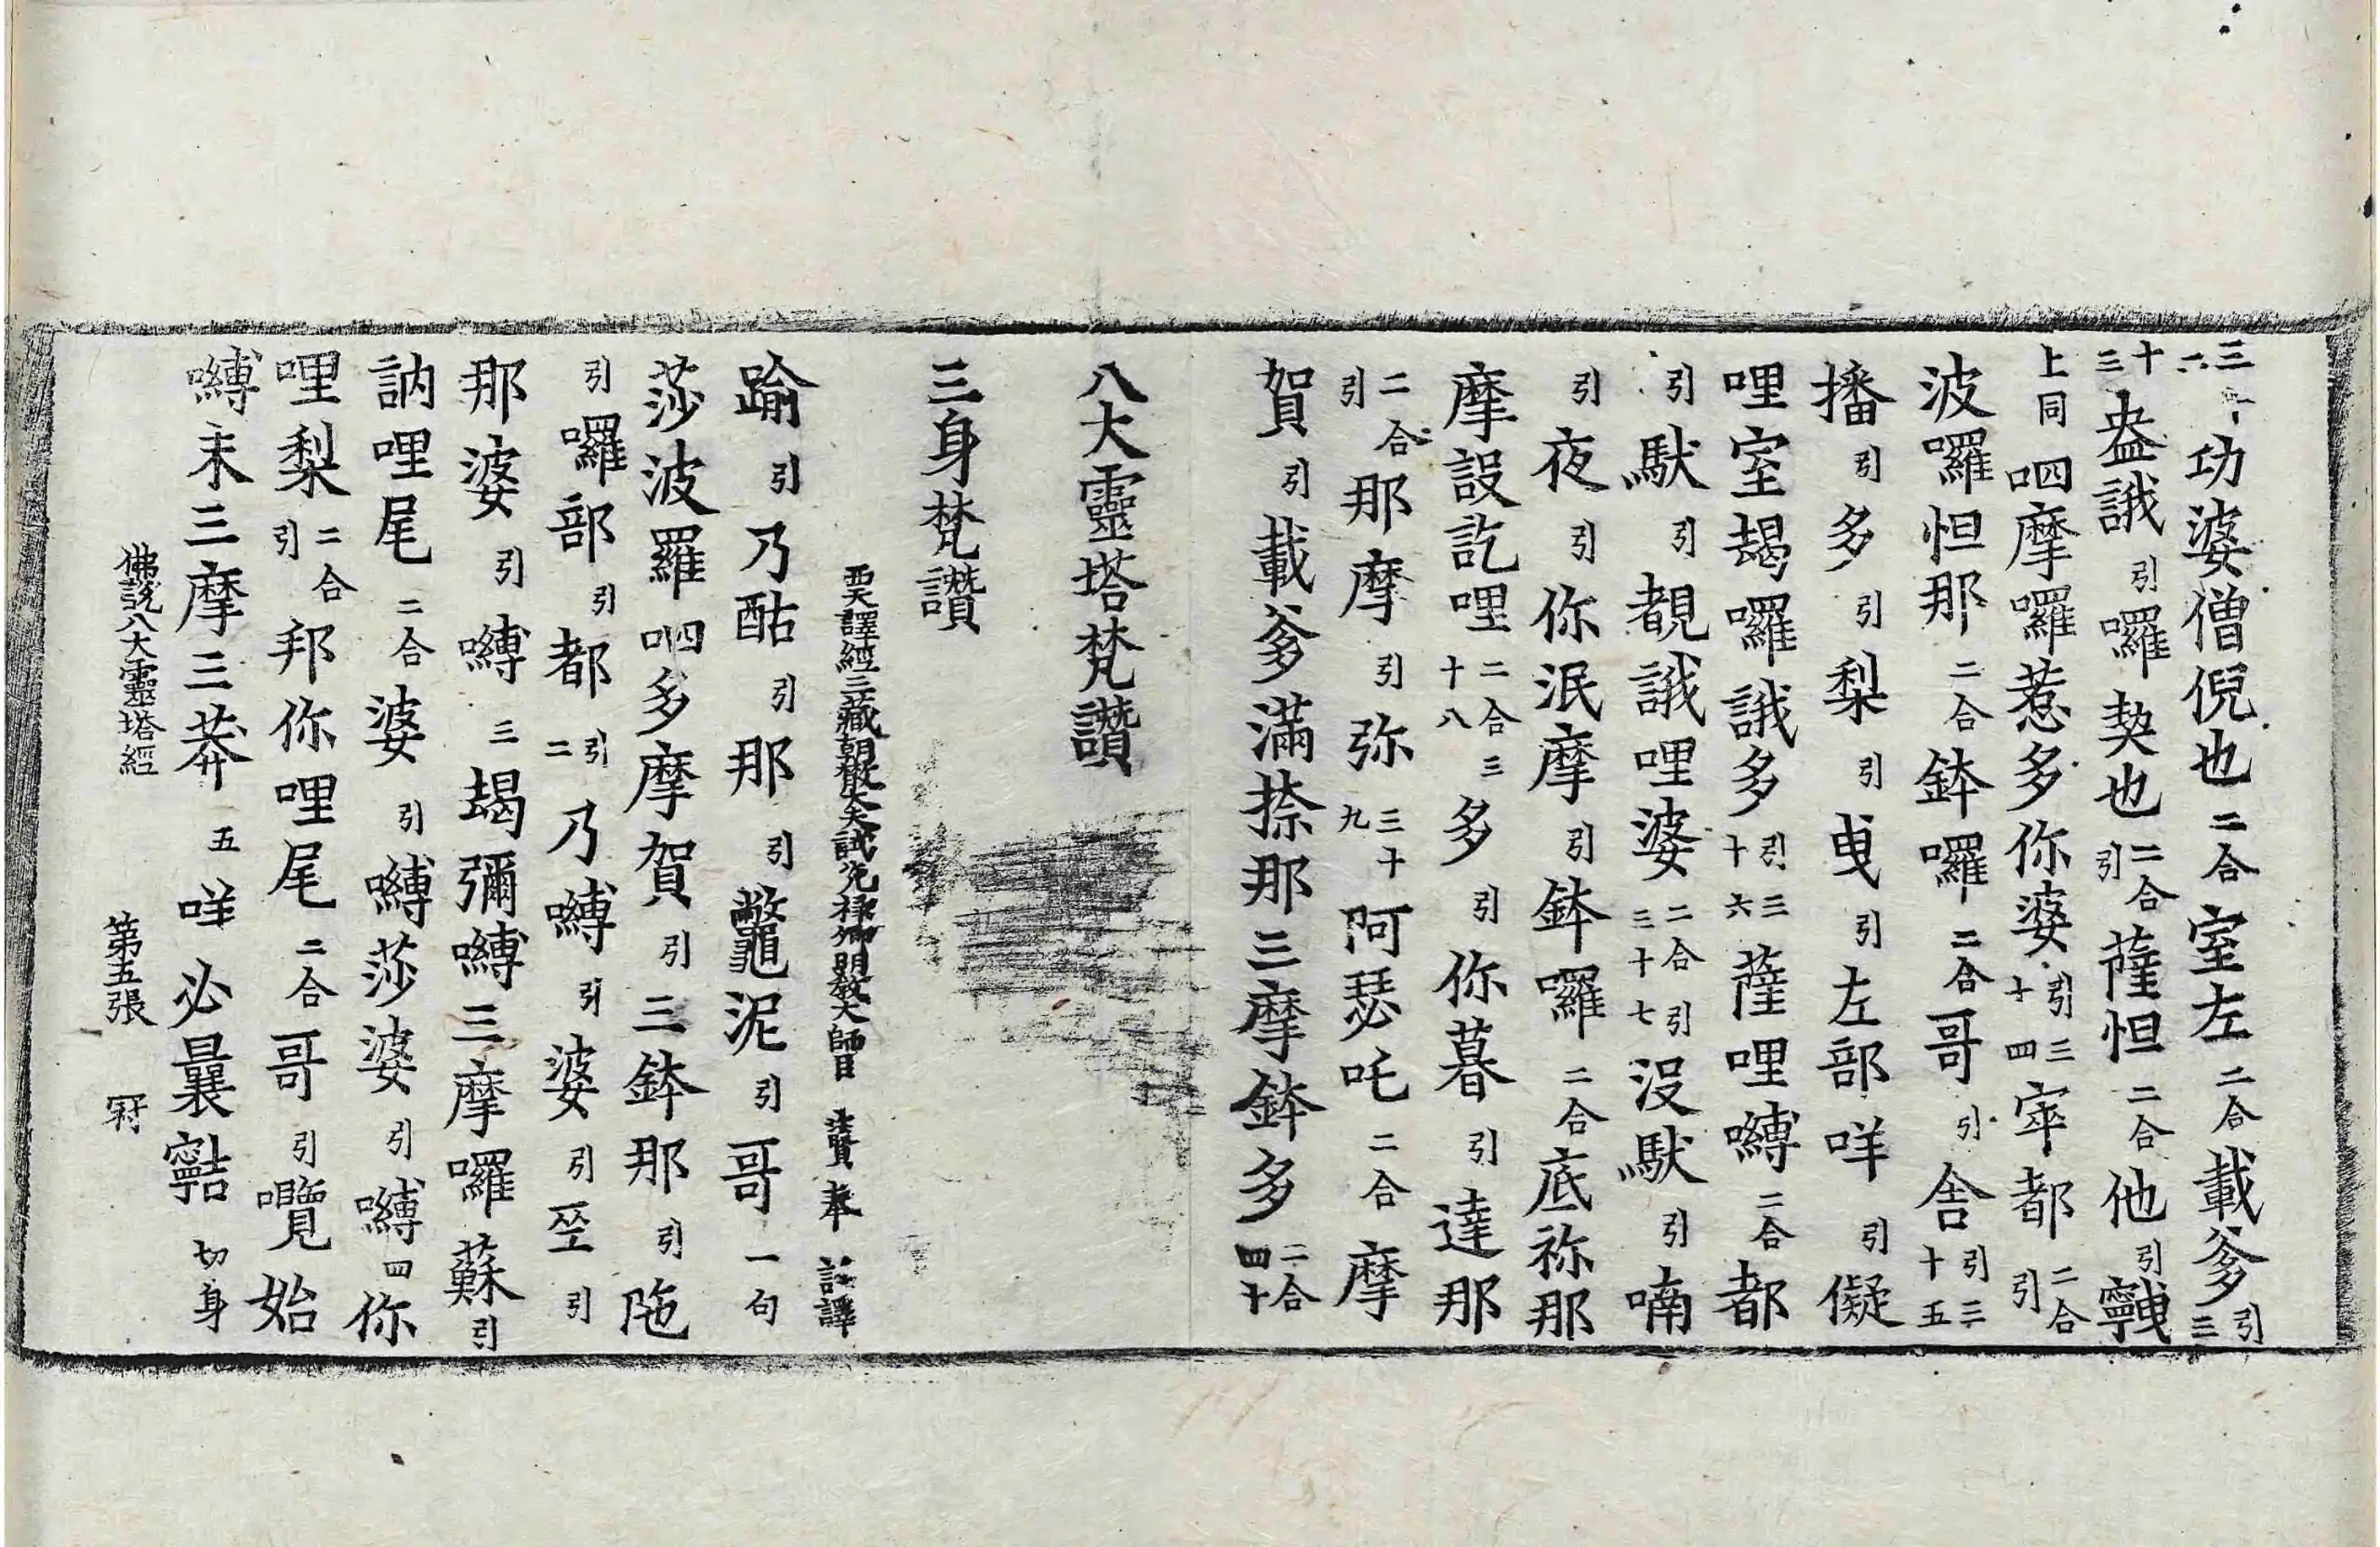 功婆僧倪也二合室左二合載爹引三
十三盎誐引囉契也二合引薩怛二合他引
上同呬摩囉惹多你婆引三十四宰都二合引
波囉怛那二合鉢囉二合哥引舍引三十五
播引多引梨引曳引左部咩引儗
哩室朅囉誐多引三十六薩哩嚩二合都
引馱引覩誐哩婆二合引三十七沒馱引喃
引夜引你泯摩引鉢囉二合底祢那
摩設訖哩二合三十八多引你暮引達那
二合引那摩引弥三十九阿瑟吒二合摩
賀引載爹滿捺那三摩鉢多二合四十
八大靈塔梵讚
三身梵讚
西天譯經三藏朝散大夫試光祿卿明教大師臣法賢奉詔譯
踰引乃酤引那引鼈泥引哥一句
莎波羅呬多摩賀引三鉢那引陁
引囉部引都引二乃嚩引婆引坙引
那婆引嚩三朅彌嚩三摩囉蘇引
訥哩尾二合婆引嚩莎婆引嚩四你
哩梨二合引邦你哩尾二合哥引囕始
嚩末三摩三莽五咩必曩切身
佛說八大靈塔經 第五張